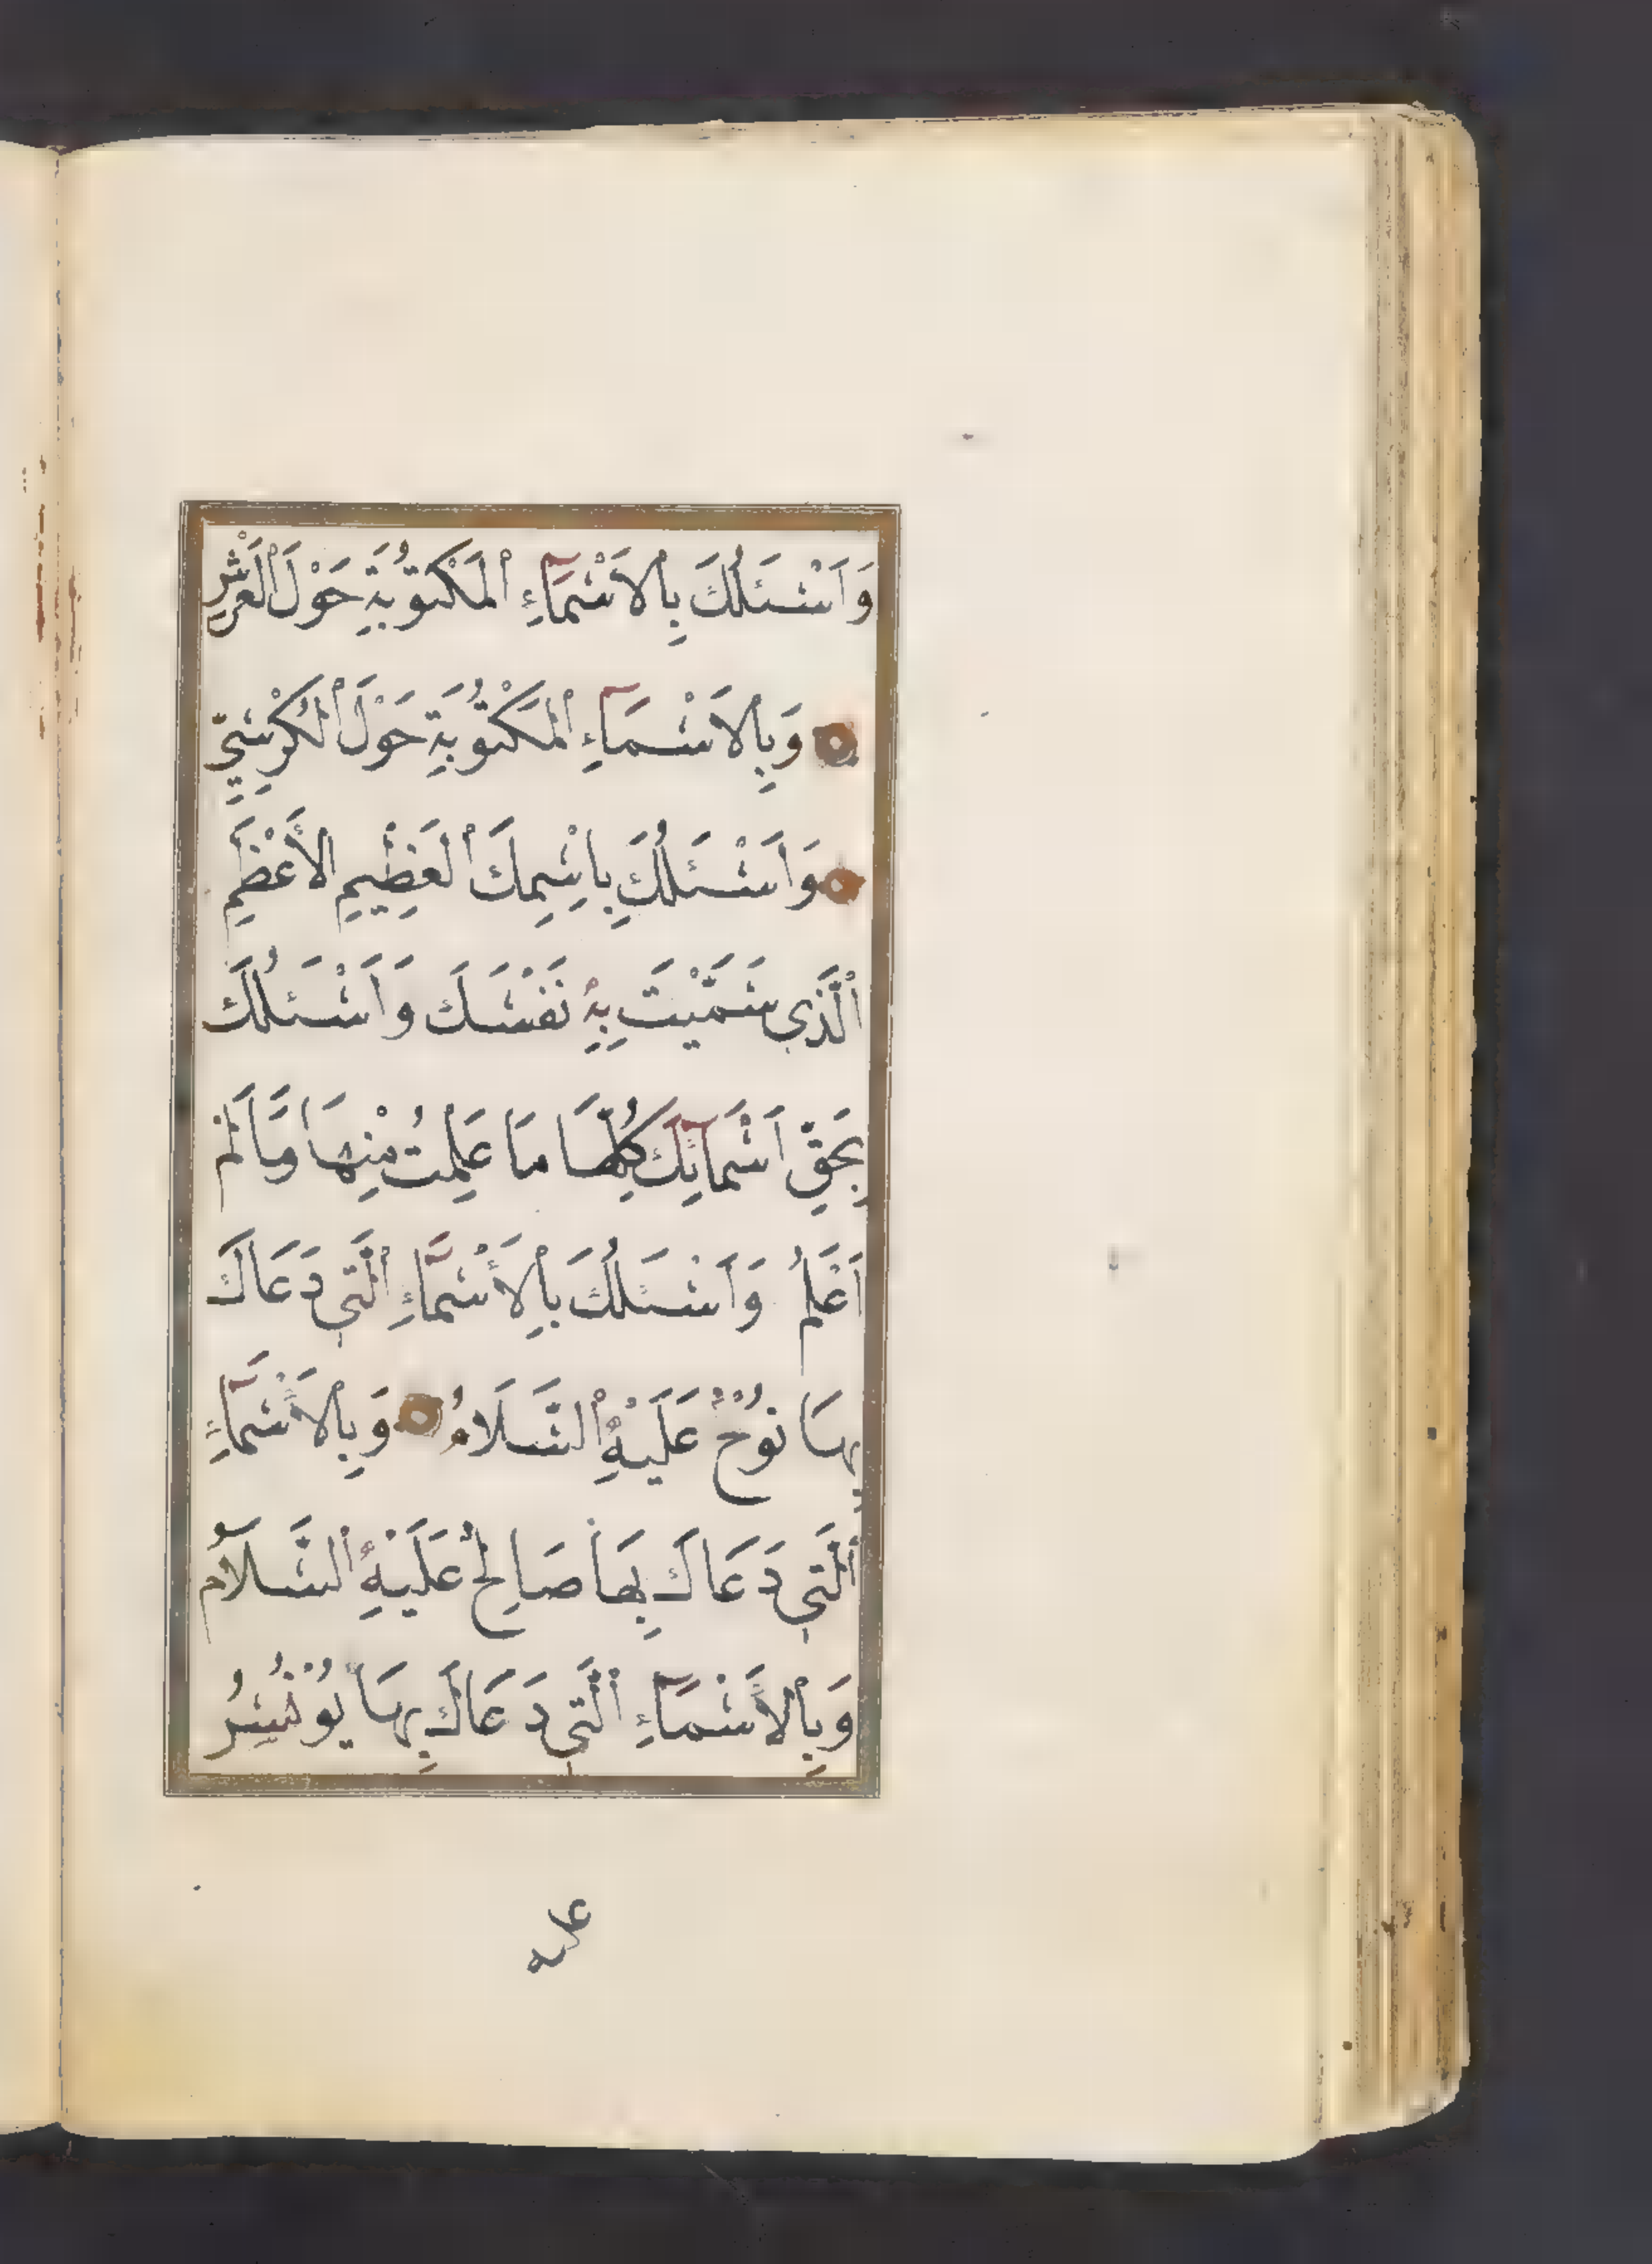 وَاَسْئَلُكَ بِالْاَسْمَآءِ الْمَكْتُوبَةِ حَوْلَ الْعَرْشِ
وَبِالْاَسْمَآءِ الْمَكْتُوبَةِ حَوْلَ الْكُرْسِيِّ
وَاَسْئَلُكَ بِاسْمِكَ الْعَظِيْمِ الْأَعْظَمِ
الَّذِي سَمَّيْتَ بِهٖ نَفْسَكَ وَاَسْئَلُكَ
بِحَقِّ اَسْمَآئِكَ كُلِّهَا مَا عَلِمْتُ مِنْهَا وَمَا لَمْ
اَعْلَمْ وَاَسْئَلُكَ بِالْأَسْمَآءِ الَّتِي دَعَاكَ
بِهَا نُوْحٌ عَلَيْهِ السَّلَامُ وَبِالْأَسْمَآءِ
الَّتِي دَعَاكَ بِهَا صَالِحٌ عَلَيْهِ السَّلَامُ
وَبِالْأَسْمَآءِ الَّتِي دَعَاكَ بِهَا يُوْنُسُ
عليه